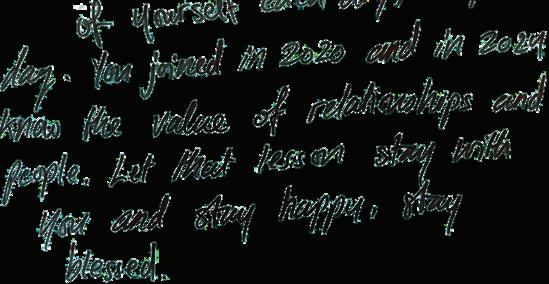 of yourself
day. You joined in 2020 and in 2024
know the value of relationships and
people. Let that lesson stay with
you and stay happy, stay
blessed.